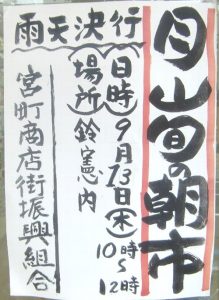 月山旬の朝市
雨天決行
(日時) 9月13日(木)
10時〜12時
(場所) 鈴憲内
宮町商店街振興組合